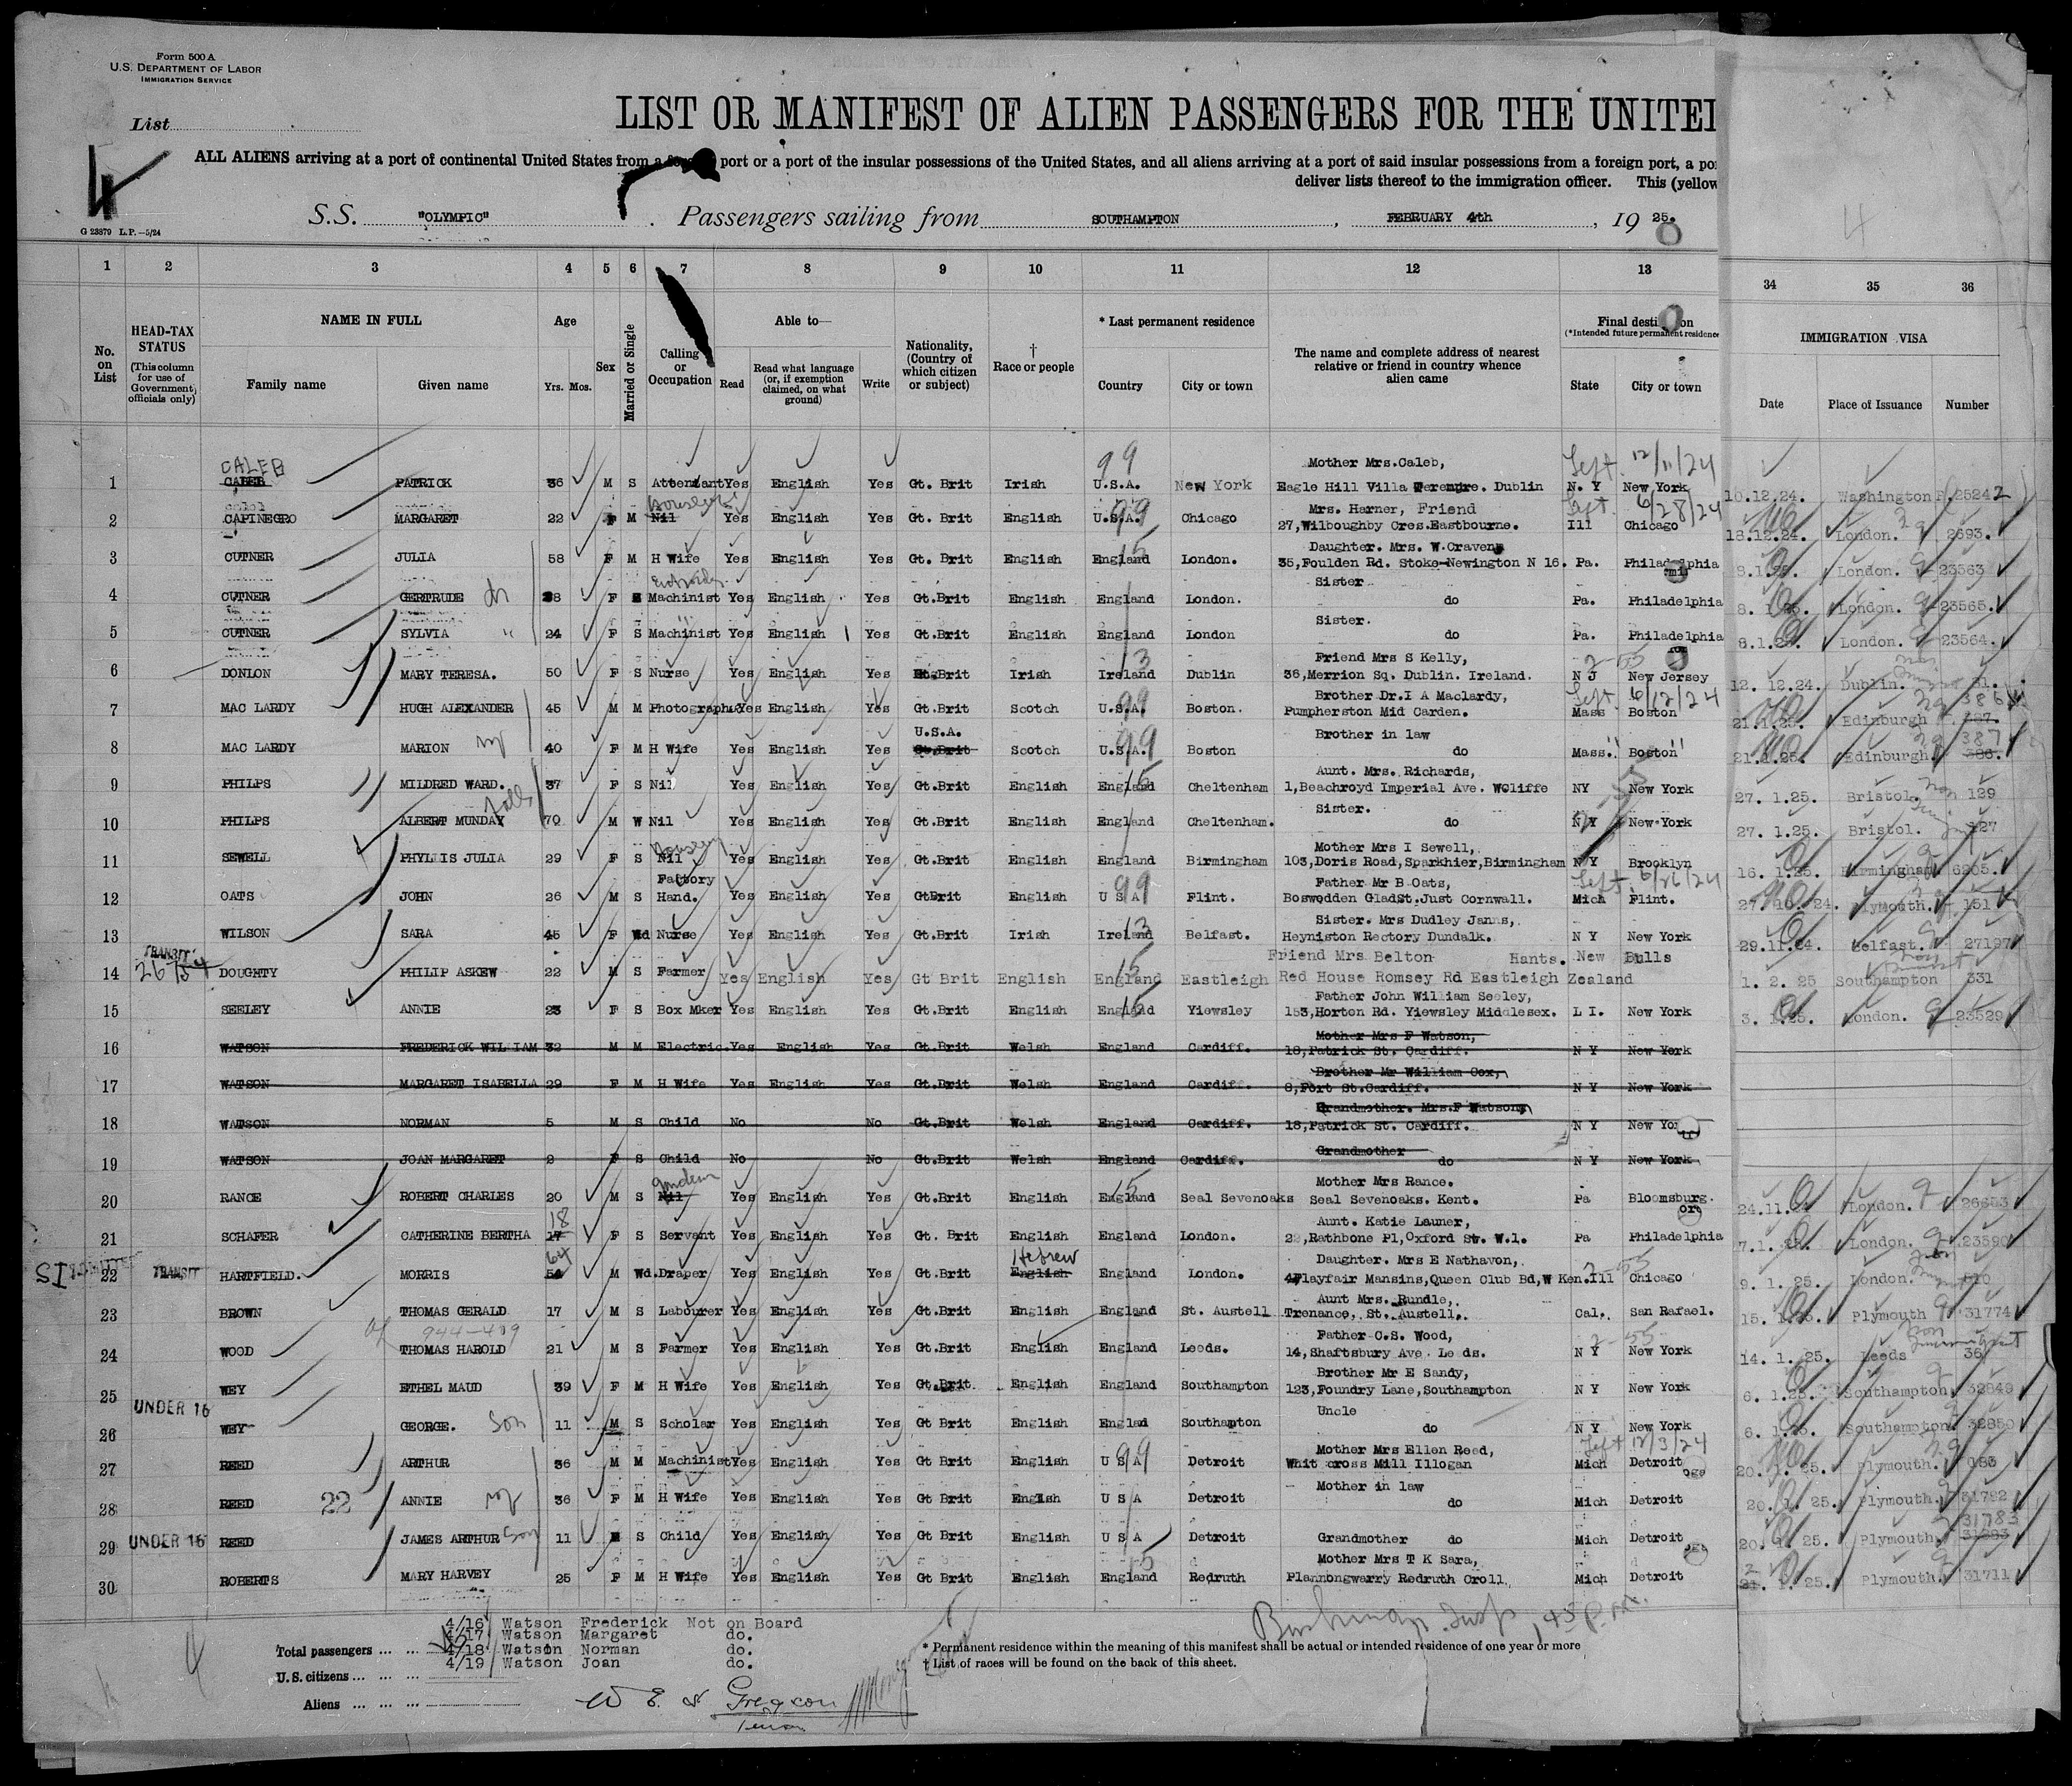 Form 500 A
U.S. DEPARTMENT OF LABOR
IMMIGRATION SERVICE
LIST OR MANIFEST OF ALIEN PASSENGERS FOR THE UNITE
List
ALL ALIENS arriving at a port of continental United States from a port or a port of the insular possessions of the United States, and all aliens arriving at a port of said insular possessions from a foreign port, a po
deliver lists thereof to the immigration officer. This (yellow
4
S.S. "OLYMPIC" Passengers sailing from SOUTHAMPTON, FEBRUARY 4th, 19 25.
G 23879 L.P.—5/24
1 2 3 4 5 6 7 8 9 10 11 12 13 34 35 36
No. on List
HEAD-TAX STATUS
(This column for use of Government officials only)
NAME IN FULL
Family name Given name
Age
Yrs. Mos.
Sex
Married or Single
Calling or Occupation
Able to—
Read
Read what language (or, if exemption claimed, on what ground)
Write
Nationality, (Country of which citizen or subject)
† Race or people
* Last permanent residence
Country City or town
The name and complete address of nearest relative or friend in country whence alien came
(*Intended future permanent residence
State City or town
IMMIGRATION VISA
Date Place of Issuance Number
CALEB 99 Mother Mrs.Caleb, 12/11/24
1 PATRICK 36 M S Attendant Yes English Yes Gt. Brit Irish U.S.A. New York Eagle Hill Villa Dublin N. Y New York 10.12.24. Washington
Mrs. Harner, Friend 6/28/24
2 CAPINEGRO MARGARET 22 F M Nil Yes English Yes Gt. Brit English U.S.A. Chicago 27,Wilboughby Cres.Eastbourne. Ill Chicago 18.12.24. London. 2693.
Daughter. Mrs. W.Craven
3 CUTNER JULIA 58 F M H Wife Yes English Yes Gt. Brit English England London. 35,Foulden Rd. Stoke-Newington N 16. Pa. Philadelphia London. 23563
Sister
4 CUTNER GERTRUDE F Machinist Yes English Yes Gt.Brit English England London. do Pa. Philadelphia London. 23565.
Sister.
5 CUTNER SYLVIA 24 F S Machinist Yes English Yes Gt.Brit English England London do Pa. Philadelphia 8.1.25. London. 23564.
Friend Mrs S Kelly,
6 DONLON MARY TERESA. 50 F S Nurse Yes English Yes Irish Ireland Dublin 36,Merrion Sq. Dublin. Ireland. N J New Jersey 12. 12.24. Dublin.
Brother Dr.I A Maclardy, 6/12/24
7 MAC LARDY HUGH ALEXANDER 45 M M Yes English Yes Gt.Brit Scotch U.S.A. Boston. Pumpherston Mid Carden. Mass Boston 21.1.25. Edinburgh
U.S.A. Brother in law
8 MAC LARDY MARION 40 F M H Wife Yes English Yes Gt.Brit Scotch U.S.A. Boston do Mass. Boston 21.1.25. Edinburgh. 387
Aunt. Mrs. Richards,
9 PHILPS MILDRED WARD. 37 F S Nil Yes English Yes Gt.Brit English England Cheltenham 1,Beachroyd Imperial Ave. Wcliffe NY New York 27. 1.25. Bristol. 129
Sister.
10 PHILPS ALBERT MUNDAY 70 M W Nil Yes English Yes Gt.Brit English England Cheltenham. do N Y New York 27. 1.25. Bristol. 127
Mother Mrs I Sewell,
11 SEWELL PHYLLIS JULIA 29 F S Nil Yes English Yes Gt.Brit English England Birmingham 103,Doris Road,Sparkhier,Birmingham N Y Brooklyn 16. 1.25. Birmingham 6205.
Factory 99 Father Mr B Oats, 6/26/24
12 OATS JOHN 26 M S Hand. Yes English Yes GtBrit English U S A Flint. Boswodden GladSt.Just Cornwall. Mich Flint. Plymouth. 151
Sister. Mrs Dudley Janns,
13 WILSON SARA 45 F Wd Nurse Yes English Yes Gt.Brit Irish Ireland Belfast. Heyniston Rectory Dundalk. N Y New York 29.11.24. Belfast. 27197
TRANSIT Friend Mrs Belton Hants. New Bulls
14 DOUGHTY PHILIP ASKEW 22 M S Farmer Yes English Yes Gt Brit English England Eastleigh Red House Romsey Rd Eastleigh Zealand 1. 2. 25 Southampton 331
Father John William Seeley,
15 SEELEY ANNIE 23 F S Box Mker Yes English Yes Gt.Brit English England Yiewsley 153,Horton Rd. Yiewsley Middlesex. L I. New York London. 23529
Mother Mrs F Watson,
16 WATSON FREDERICK WILLIAM 32 M M Electric. Yes English Yes Gt.Brit Welsh England Cardiff. 18,Patrick St. Cardiff. N Y New York
Brother Mr William Cox,
17 WATSON MARGARET ISABELLA 29 F M H Wife Yes English Yes Gt.Brit Welsh England Cardiff. 8,Fort St.Cardiff. N Y New York
Grandmother. Mrs.F Watson,
18 WATSON NORMAN 5 M S Child No No Gt.Brit Welsh England Cardiff. 18,Patrick St. Cardiff. N Y New Yor
Grandmother
19 WATSON JOAN MARGARET 2 F S Child No No Gt.Brit Welsh England Cardiff. do N Y New York
Mother Mrs Rance.
20 RANCE ROBERT CHARLES 20 M S Nil Yes English Yes Gt.Brit English England Seal Sevenoaks Seal Sevenoaks. Kent. Pa Bloomsburg. London. 26653
18 Aunt. Katie Launer,
21 SCHAFER CATHERINE BERTHA 17 F S Servant Yes English Yes Gt. Brit English England London. Rathbone Pl,Oxford St. W.1. Pa Philadelphia London. 23590
64 Hebrew Daughter. Mrs E Nathavon,
22 TRANSIT HARTFIELD. MORRIS 54 M Wd. Draper Yes English Yes Gt.Brit English England London. Playfair Mansins,Queen Club Bd,W Ken. Ill Chicago 9. 1. 25. London.
Aunt Mrs. Rundle,
23 BROWN THOMAS GERALD 17 M S Labourer Yes English Yes Gt.Brit English England St. Austell Trenance, St. Austell, Cal. San Rafael. 15. 1.25. Plymouth 31774
944-409 Father C.S. Wood,
24 WOOD THOMAS HAROLD 21 M S Farmer Yes English Yes Gt.Brit English England Leeds. 14,Shaftsbury Ave. Le ds. N Y New York 14. 1. 25. Leeds 36
Brother Mr E Sandy,
25 WEY ETHEL MAUD 39 F M H Wife Yes English Yes Gt.Brit. English England Southampton 123,Foundry Lane,Southampton N Y New York 6. 1.25. Southampton 32849
UNDER 16 Uncle
26 WEY GEORGE. Son 11 M S Scholar Yes English Yes Gt Brit English Englad Southampton do N Y New York 6. 1.25. Southampton 32850
99 Mother Mrs Ellen Reed, 12/3/24
27 REED ARTHUR 36 M M Machinist Yes English Yes Gt Brit English U S A Detroit Whit cross Mill Illogan Mich Detroit Plymouth.
Mother in law
28 REED 22 ANNIE 36 F M H Wife Yes English Yes Gt Brit English U S A Detroit do Mich Detroit 20. 1. 25. Plymouth. 31782
31783
29 UNDER 16 REED JAMES ARTHUR Son 11 S Child Yes English Yes Gt Brit English U S A Detroit Grandmother do Mich Detroit 20. 1. 25. Plymouth
Mother Mrs T K Sara,
30 ROBERTS MARY HARVEY 25 F M H Wife Yes English Yes Gt Brit English England Redruth Plannongwarry Redruth Croll Mich Detroit Plymouth. 31711
4/16 Watson Frederick Not on Board
4/17 Watson Margaret do.
4/18 Watson Norman do.
4/19 Watson Joan do.
Total passengers
U.S. citizens
Aliens
* Permanent residence within the meaning of this manifest shall be actual or intended residence of one year or more
† List of races will be found on the back of this sheet.